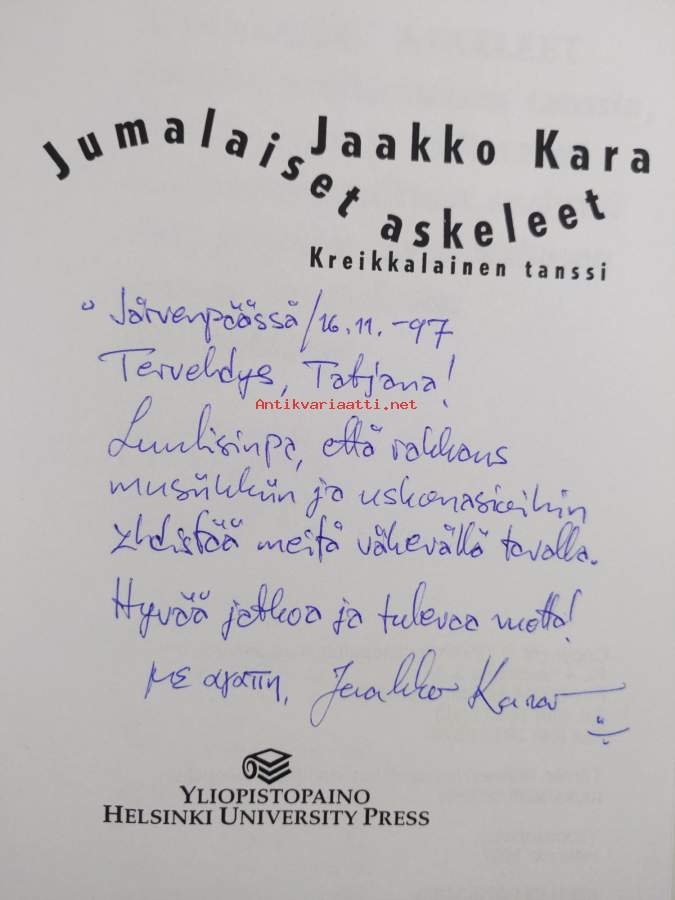 Jaakko Kara
Jumalaiset askeleet
Kreikkalainen tanssi
Järvenpäässä / 16.11.-97
Tervehdys, Tatjana!
Antikvariaatti.net
Luulisinpa, että rakkaus
musiikkiin ja uskonasioihin
yhdistää meitä väkevällä tavalla.
Hyvää jatkoa ja tulevaa
με αγαπη, Jaakko Kara
YLIOPISTOPAINO
HELSINKI UNIVERSITY PRESS